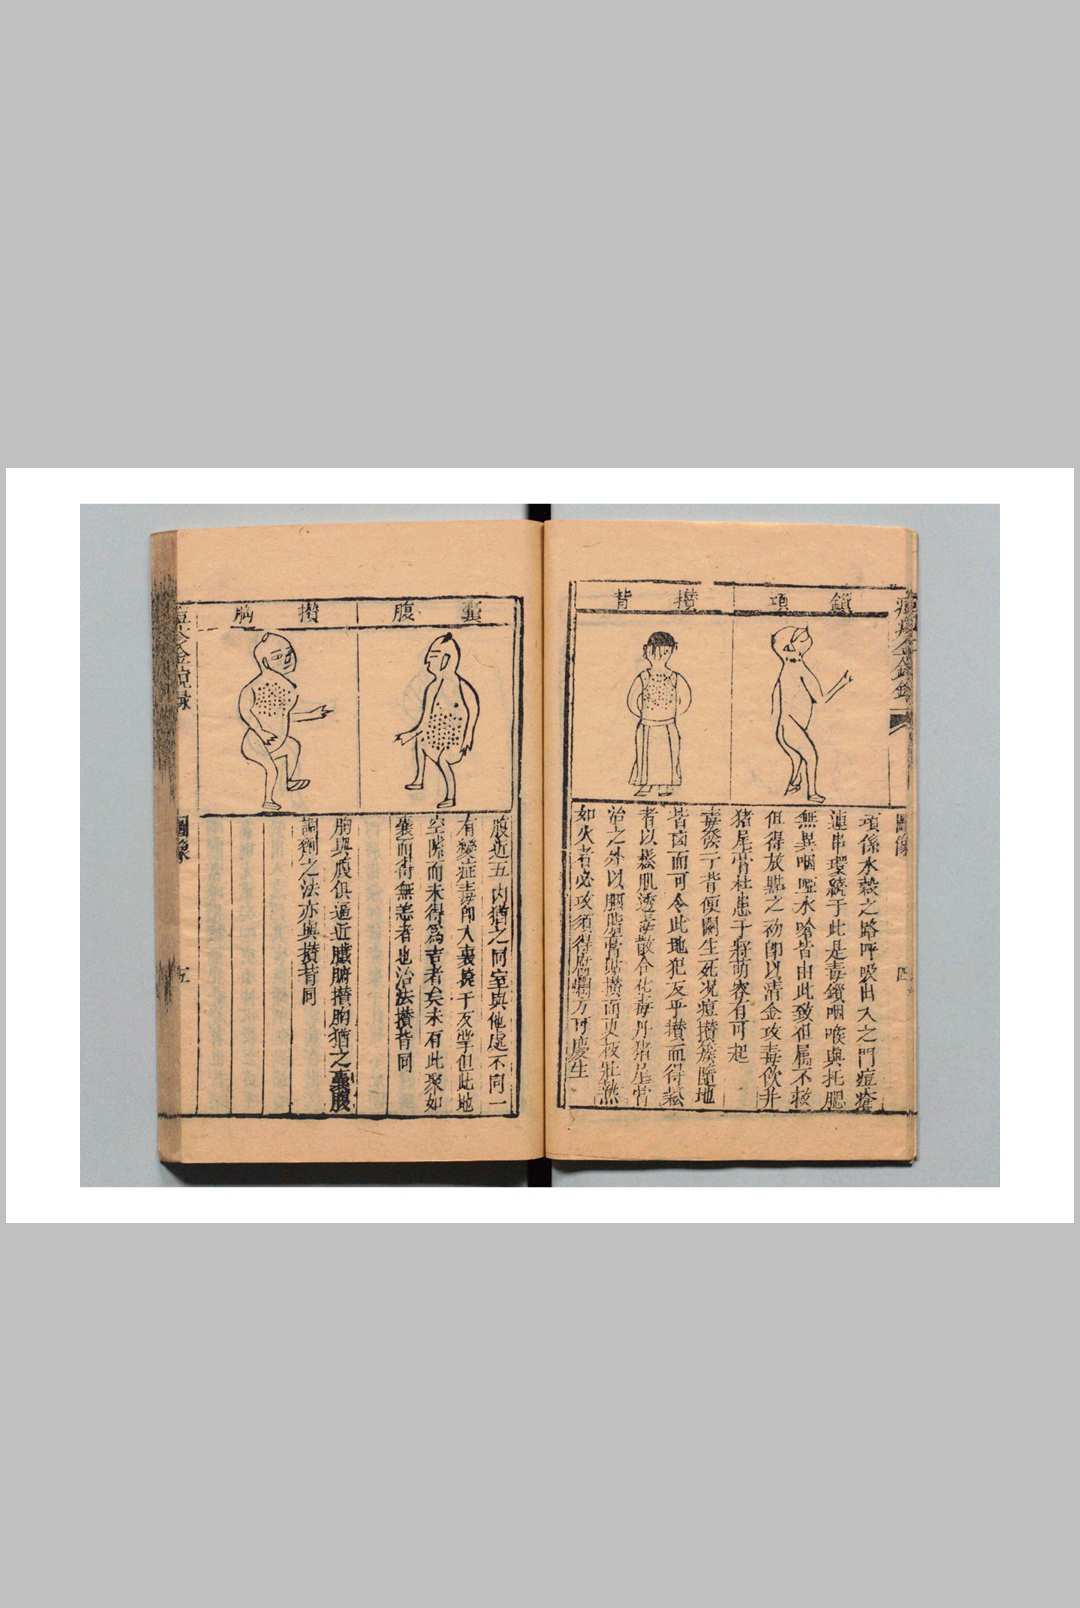 鎖項
攢背
項係水穀之路呼吸出入之門痘瘡
連串環繞于此是毒鎖咽喉與托腮
無異咽啞水嗆皆由此致但屬不救
但得放點之初卽以清金攻毒飲并
猪尾膏杜患于將萌容有可起
毒發于背便關生死况痘攢簇隨地
皆凶而可令此地犯友乎攢而得鬆
者以鬆肌透毒散合化毒丹猪尾膏
治之外以胭脂膏貼攢而更板壯熱
如火者必攻須得腐爛方可慶生
圖像
四
囊腹
攢胸
腹近五內猶之同室與他處不同一
有變症毒卽入裏捷于反掌但此地
空隙而未得為吉者矣未有此聚如
囊而得無恙者也治法攢背同
胸與腹俱逼近臟腑攢胸猶之囊腹
調劑之法亦與攢背同
圖像
五